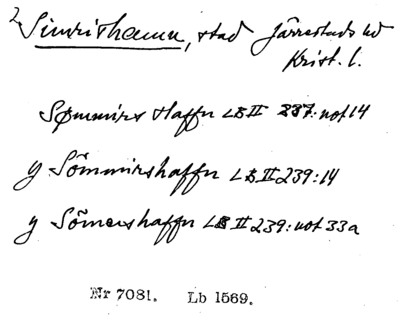 2 Simrishamn, stad Järrestads hd
Krist. l.
Sømmirs Haffn LB II 237: not 14
y Sõmmirshaffn LB II 239: 14
y Sõmershaffn LB II 239: not 33a
Nr 7081. Lb 1569.